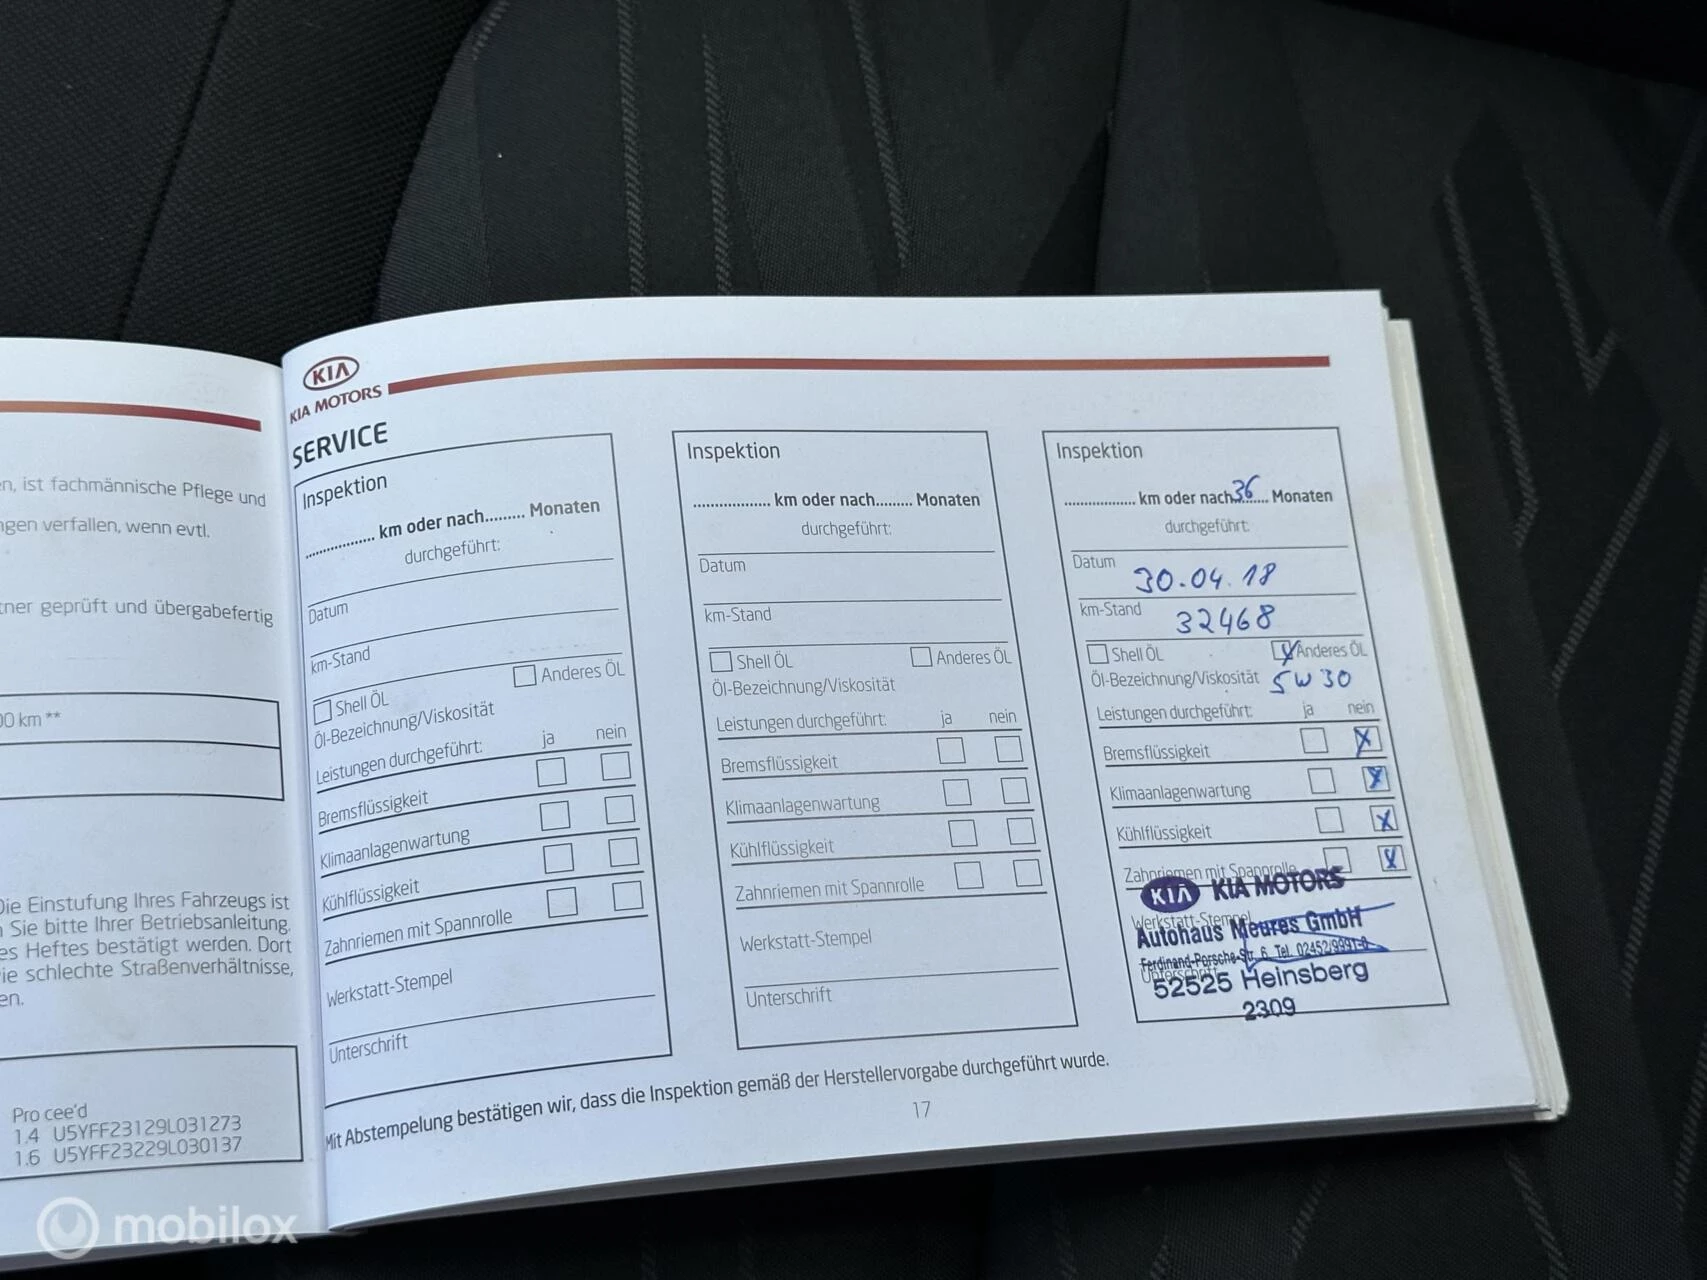 n, ist fachmännische Pflege und
ngen verfallen, wenn evtl.
tner geprüft und übergabefertig
00 km **
Die Einstufung Ihres Fahrzeugs ist
n Sie bitte Ihrer Betriebsanleitung.
es Heftes bestätigt werden. Dort
ie schlechte Straßenverhältnisse,
en.
Pro cee'd
1.4 U5YFF23129L031273
1.6 U5YFF23229L030137
KIA
KIA MOTORS
SERVICE
Inspektion
.................. km oder nach......... Monaten
durchgeführt:
Datum
km-Stand
Shell ÖL Anderes ÖL
Öl-Bezeichnung/Viskosität
Leistungen durchgeführt: ja nein
Bremsflüssigkeit
Klimaanlagenwartung
Kühlflüssigkeit
Zahnriemen mit Spannrolle
Werkstatt-Stempel
Unterschrift
Inspektion
.................. km oder nach......... Monaten
durchgeführt:
Datum
km-Stand
Shell ÖL Anderes ÖL
Öl-Bezeichnung/Viskosität
Leistungen durchgeführt: ja nein
Bremsflüssigkeit
Klimaanlagenwartung
Kühlflüssigkeit
Zahnriemen mit Spannrolle
Werkstatt-Stempel
Unterschrift
Inspektion
.................. km oder nach 36 Monaten
durchgeführt:
Datum 30.04.18
km-Stand 32468
Shell ÖL X Anderes ÖL
Öl-Bezeichnung/Viskosität 5W30
Leistungen durchgeführt: ja nein
Bremsflüssigkeit X
Klimaanlagenwartung X
Kühlflüssigkeit X
Zahnriemen mit Spannrolle X
KIA KIA MOTORS
Werkstatt-Stempel
Autohaus Meures GmbH
Ferdinand-Porsche-Str. 6 Tel. 02452/9991-0
Unterschrift
52525 Heinsberg
2309
Mit Abstempelung bestätigen wir, dass die Inspektion gemäß der Herstellervorgabe durchgeführt wurde.
17
mobilox